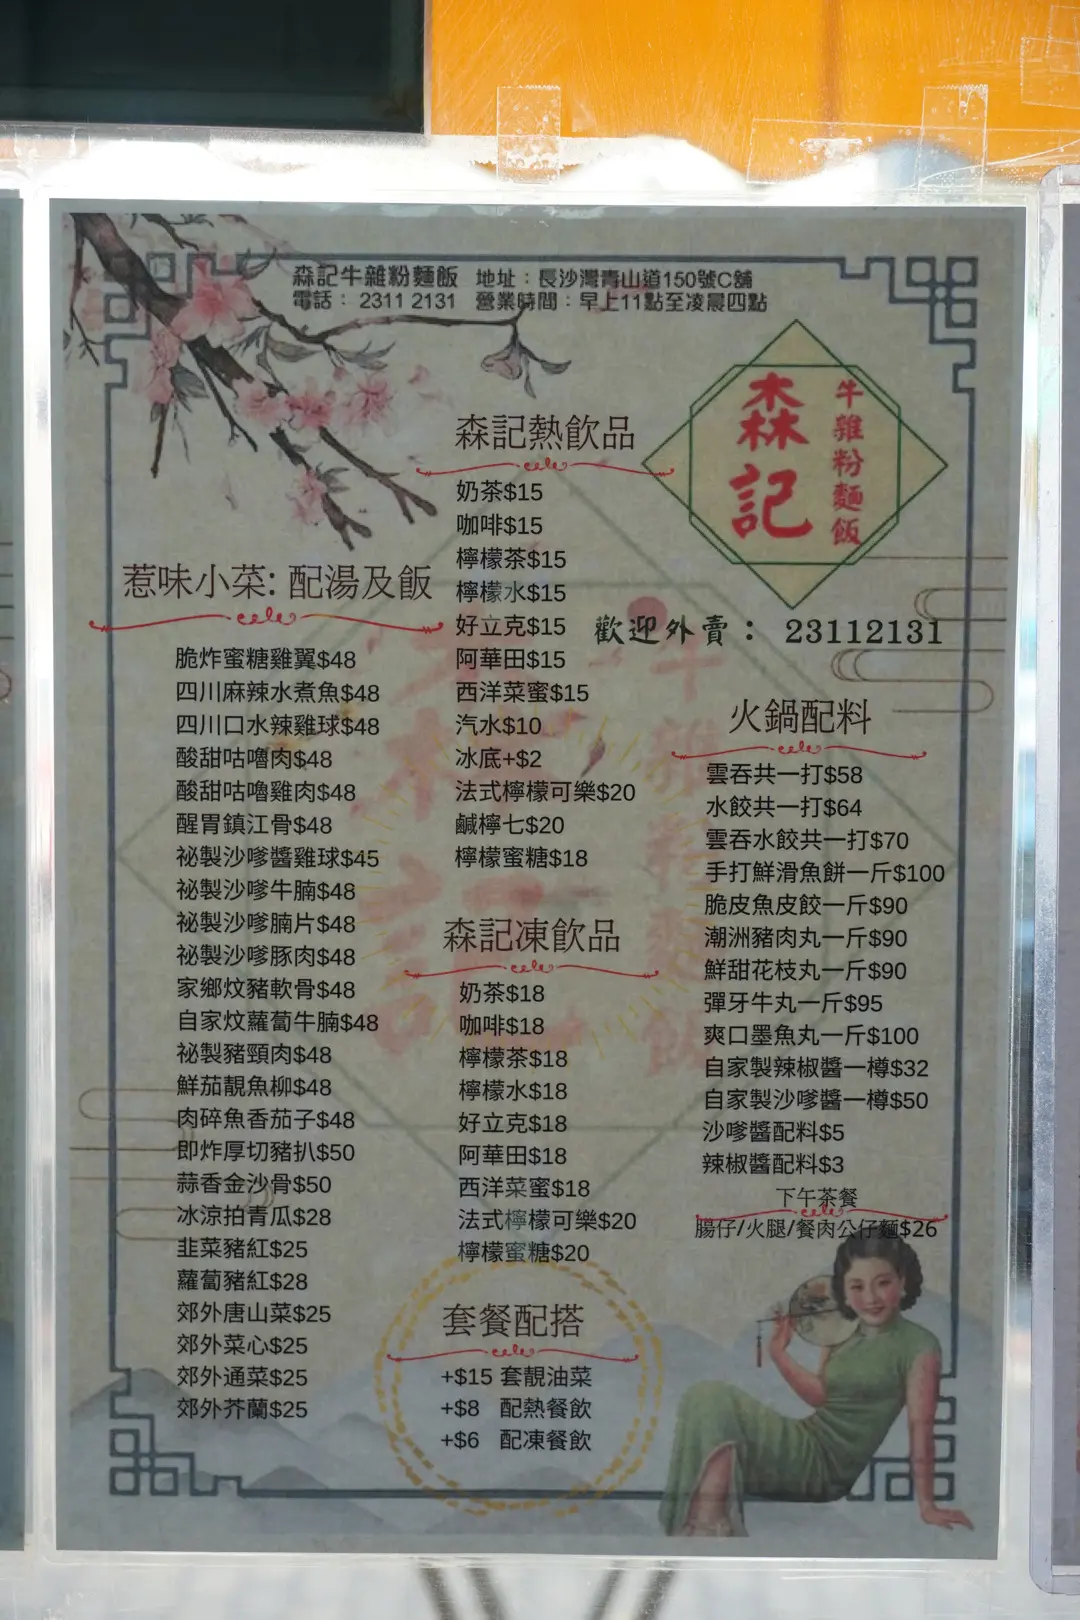 森記牛雜粉麵飯 地址：長沙灣青山道150號C舖
電話： 2311 2131 營業時間：早上11點至凌晨四點
森記
牛雜粉麵飯
歡迎外賣： 23112131
惹味小菜: 配湯及飯
脆炸蜜糖雞翼$48
四川麻辣水煮魚$48
四川口水辣雞球$48
酸甜咕嚕肉$48
酸甜咕嚕雞肉$48
醒胃鎮江骨$48
祕製沙嗲醬雞球$45
祕製沙嗲牛腩$48
祕製沙嗲腩片$48
祕製沙嗲豚肉$48
家鄉炆豬軟骨$48
自家炆蘿蔔牛腩$48
祕製豬頸肉$48
鮮茄靚魚柳$48
肉碎魚香茄子$48
即炸厚切豬扒$50
蒜香金沙骨$50
冰涼拍青瓜$28
韭菜豬紅$25
蘿蔔豬紅$28
郊外唐山菜$25
郊外菜心$25
郊外通菜$25
郊外芥蘭$25
森記熱飲品
奶茶$15
咖啡$15
檸檬茶$15
檸檬水$15
好立克$15
阿華田$15
西洋菜蜜$15
汽水$10
冰底+$2
法式檸檬可樂$20
鹹檸七$20
檸檬蜜糖$18
森記凍飲品
奶茶$18
咖啡$18
檸檬茶$18
檸檬水$18
好立克$18
阿華田$18
西洋菜蜜$18
法式檸檬可樂$20
檸檬蜜糖$20
套餐配搭
+$15 套靚油菜
+$8 配熱餐飲
+$6 配凍餐飲
火鍋配料
雲吞共一打$58
水餃共一打$64
雲吞水餃共一打$70
手打鮮滑魚餅一斤$100
脆皮魚皮餃一斤$90
潮洲豬肉丸一斤$90
鮮甜花枝丸一斤$90
彈牙牛丸一斤$95
爽口墨魚丸一斤$100
自家製辣椒醬一樽$32
自家製沙嗲醬一樽$50
沙嗲醬配料$5
辣椒醬配料$3
下午茶餐
腸仔/火腿/餐肉公仔麵$26